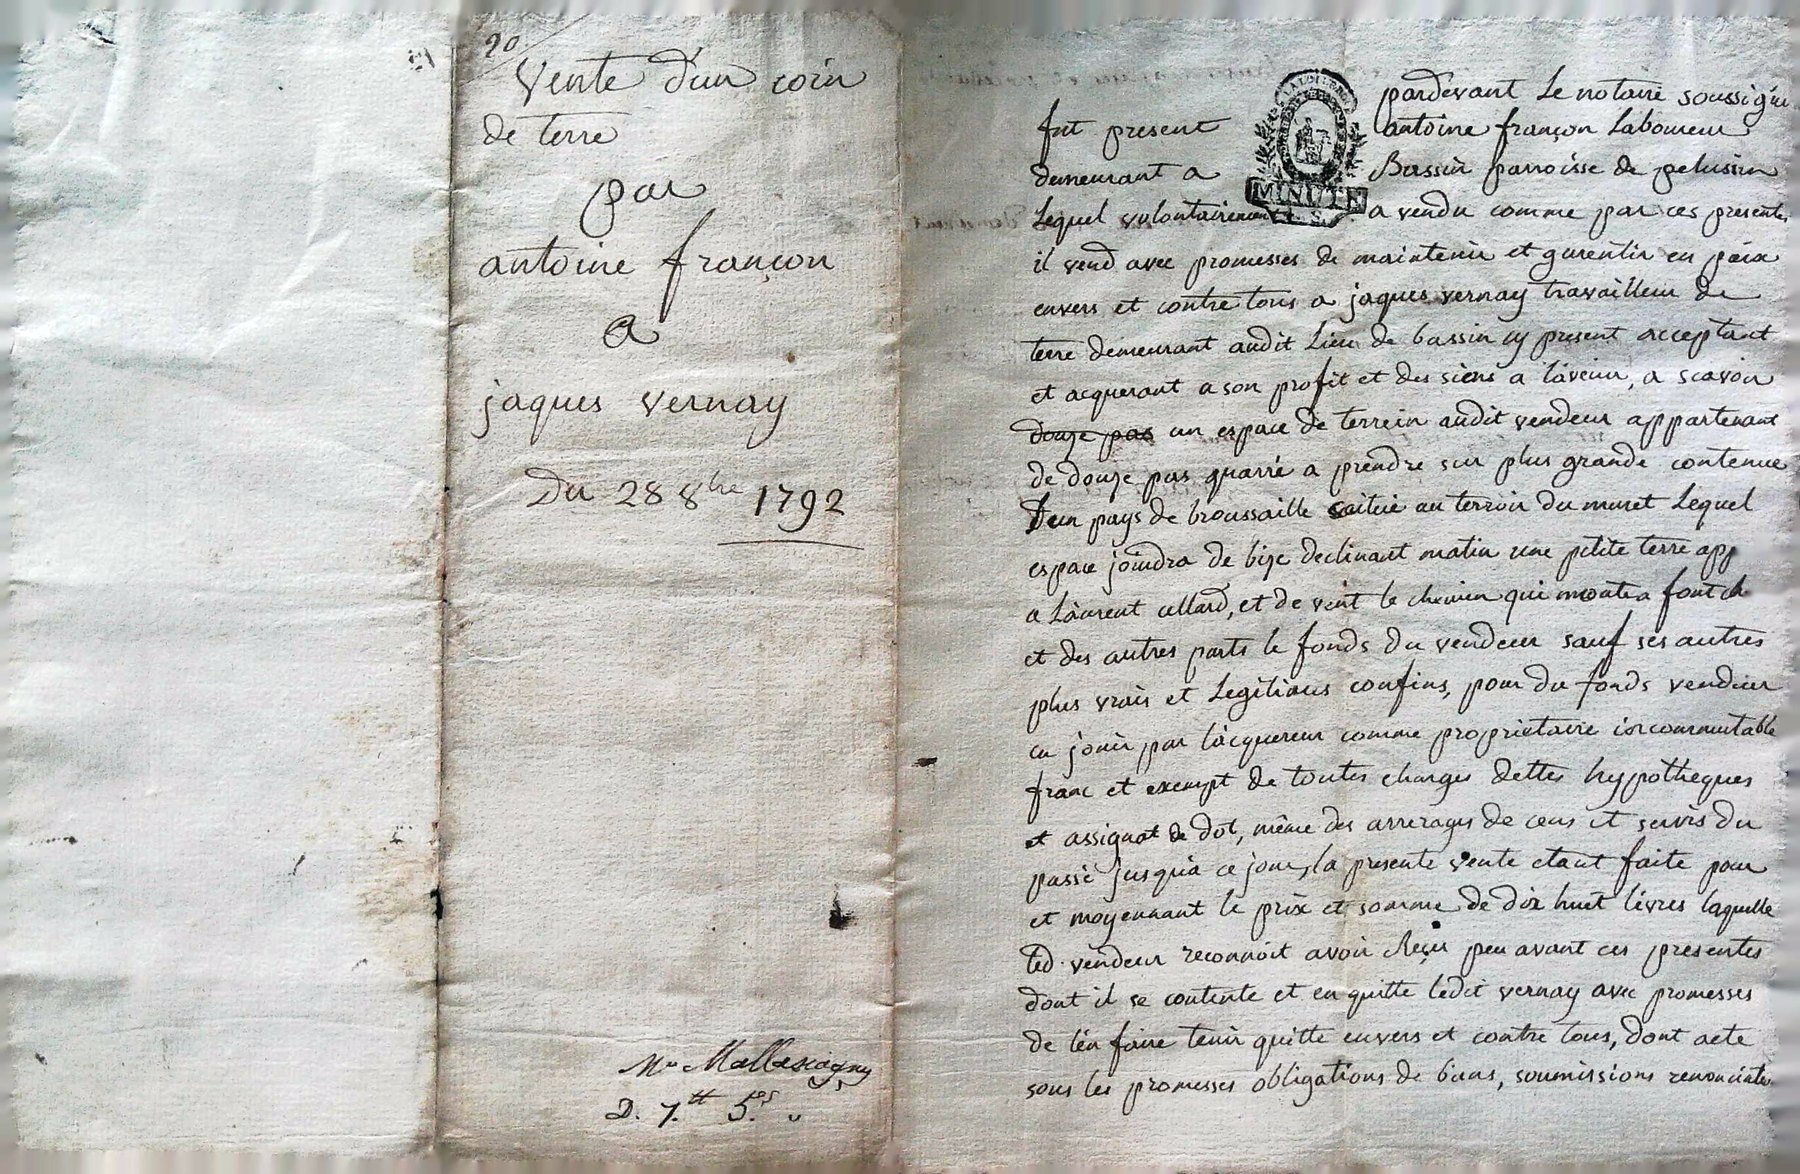 20
Vente d'un coin
de terre
par
antoine françon
a
jaques vernay
Du 28 8bre 1792
Me Mallassagny
D. 7.tt 5.s
pardevant Le notaire soussigné
fut present antoine françon Laboureur
demeurant a Bassin parroisse de pelussin
Lequel volontairement a vendu comme par ces presentes
il vend avec promesses de maintenir et garentir en paix
envers et contre tous a jaques vernay travailleur de
terre demeurant audit Lieu de bassin cy present acceptant
et acquerant a son profit et des siens a l'avenir, a scavoir
douze pas un espace de terrein audit vendeur appartenant
de douze pas quarré a prendre sur plus grande contenue
d'un pays de broussaille scituée au terroir du muret Lequel
espace joindra de bize declinant matin une petite terre app
a Laurent allard, et de vent le chemin qui monte a
et des autres parts le fonds du vendeur sauf ses autres
plus vrais et Legitimes confins, pour du fonds vendu
en jouir par l'acquereur comme proprietaire incommutable
franc et exempt de toutes charges dettes hypotheques
et assignat de dot, même des arrerages de cens et servis du
passé jusqu'a ce jour, la presente vente etant faite pour
et moyennant le prix et somme de dix huit livres laquelle
led. vendeur reconnoit avoir Reçu peu avant ces presentes
dont il se contente et en quitte ledit vernay avec promesses
de l'en faire tenir quitte envers et contre tous, dont acte
sous les promesses obligations de biens, soumissions renonciations
MINUTE